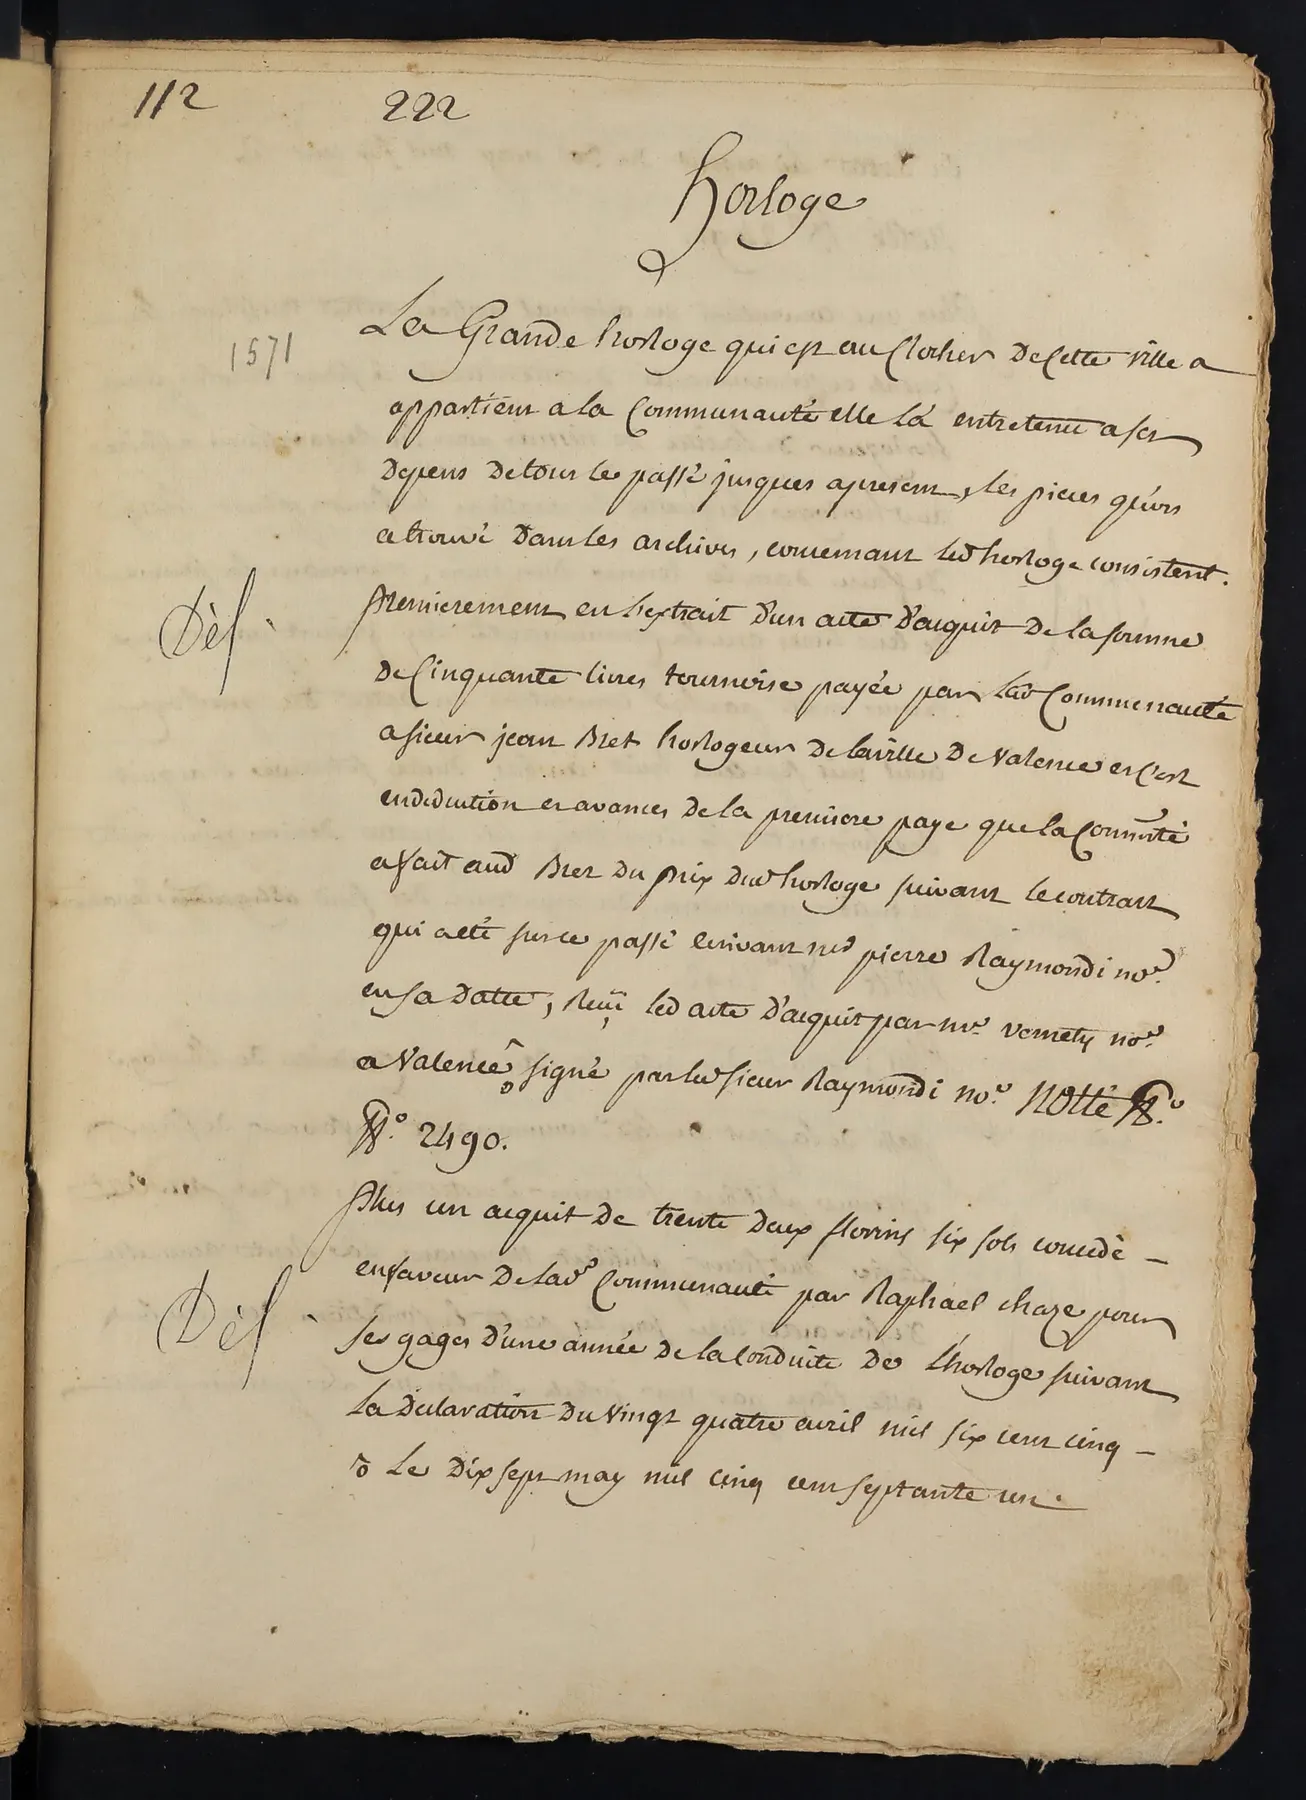 112 222
horloge
1571
La Grande horloge qui est au Clocher De Cette ville a
appartient a la Communauté elle la entretenue a ses
Depens De tous le passé jusques apresent, les pieces qu'on
a trouvé Dans les archives, concernant led horloge consistent.
Dèl
premierement en l'extrait d'un acte D'acquit De la somme
De Cinquante livres tournoise payée par lad Communauté
a sieur jean Bret horlogeur De la ville De Valence et C'est
en deduction et avances De la premiere paye que la Commté
a fait aud Bret Du prix Dud horloge suivant le contract
qui a eté sur ce passé ecrivant me pierre Raymondi nore.
en sa Datte, Reçû led acte D'acquit par me. vernety nore.
a Valence^o signé par led sieur Raymondi nore. Notté No.
No. 2490.
Plus un acquit De trente Deux florins six sols concedé –
Dèl
en faveur De lad.e Communauté par Raphael chaze pour
ses gages D'une année De la Conduite De l'horloge suivant
La Declaration Du vingt quatre avril mil six cent cinq –
o Le Dix sept may mil cinq cent septante un.